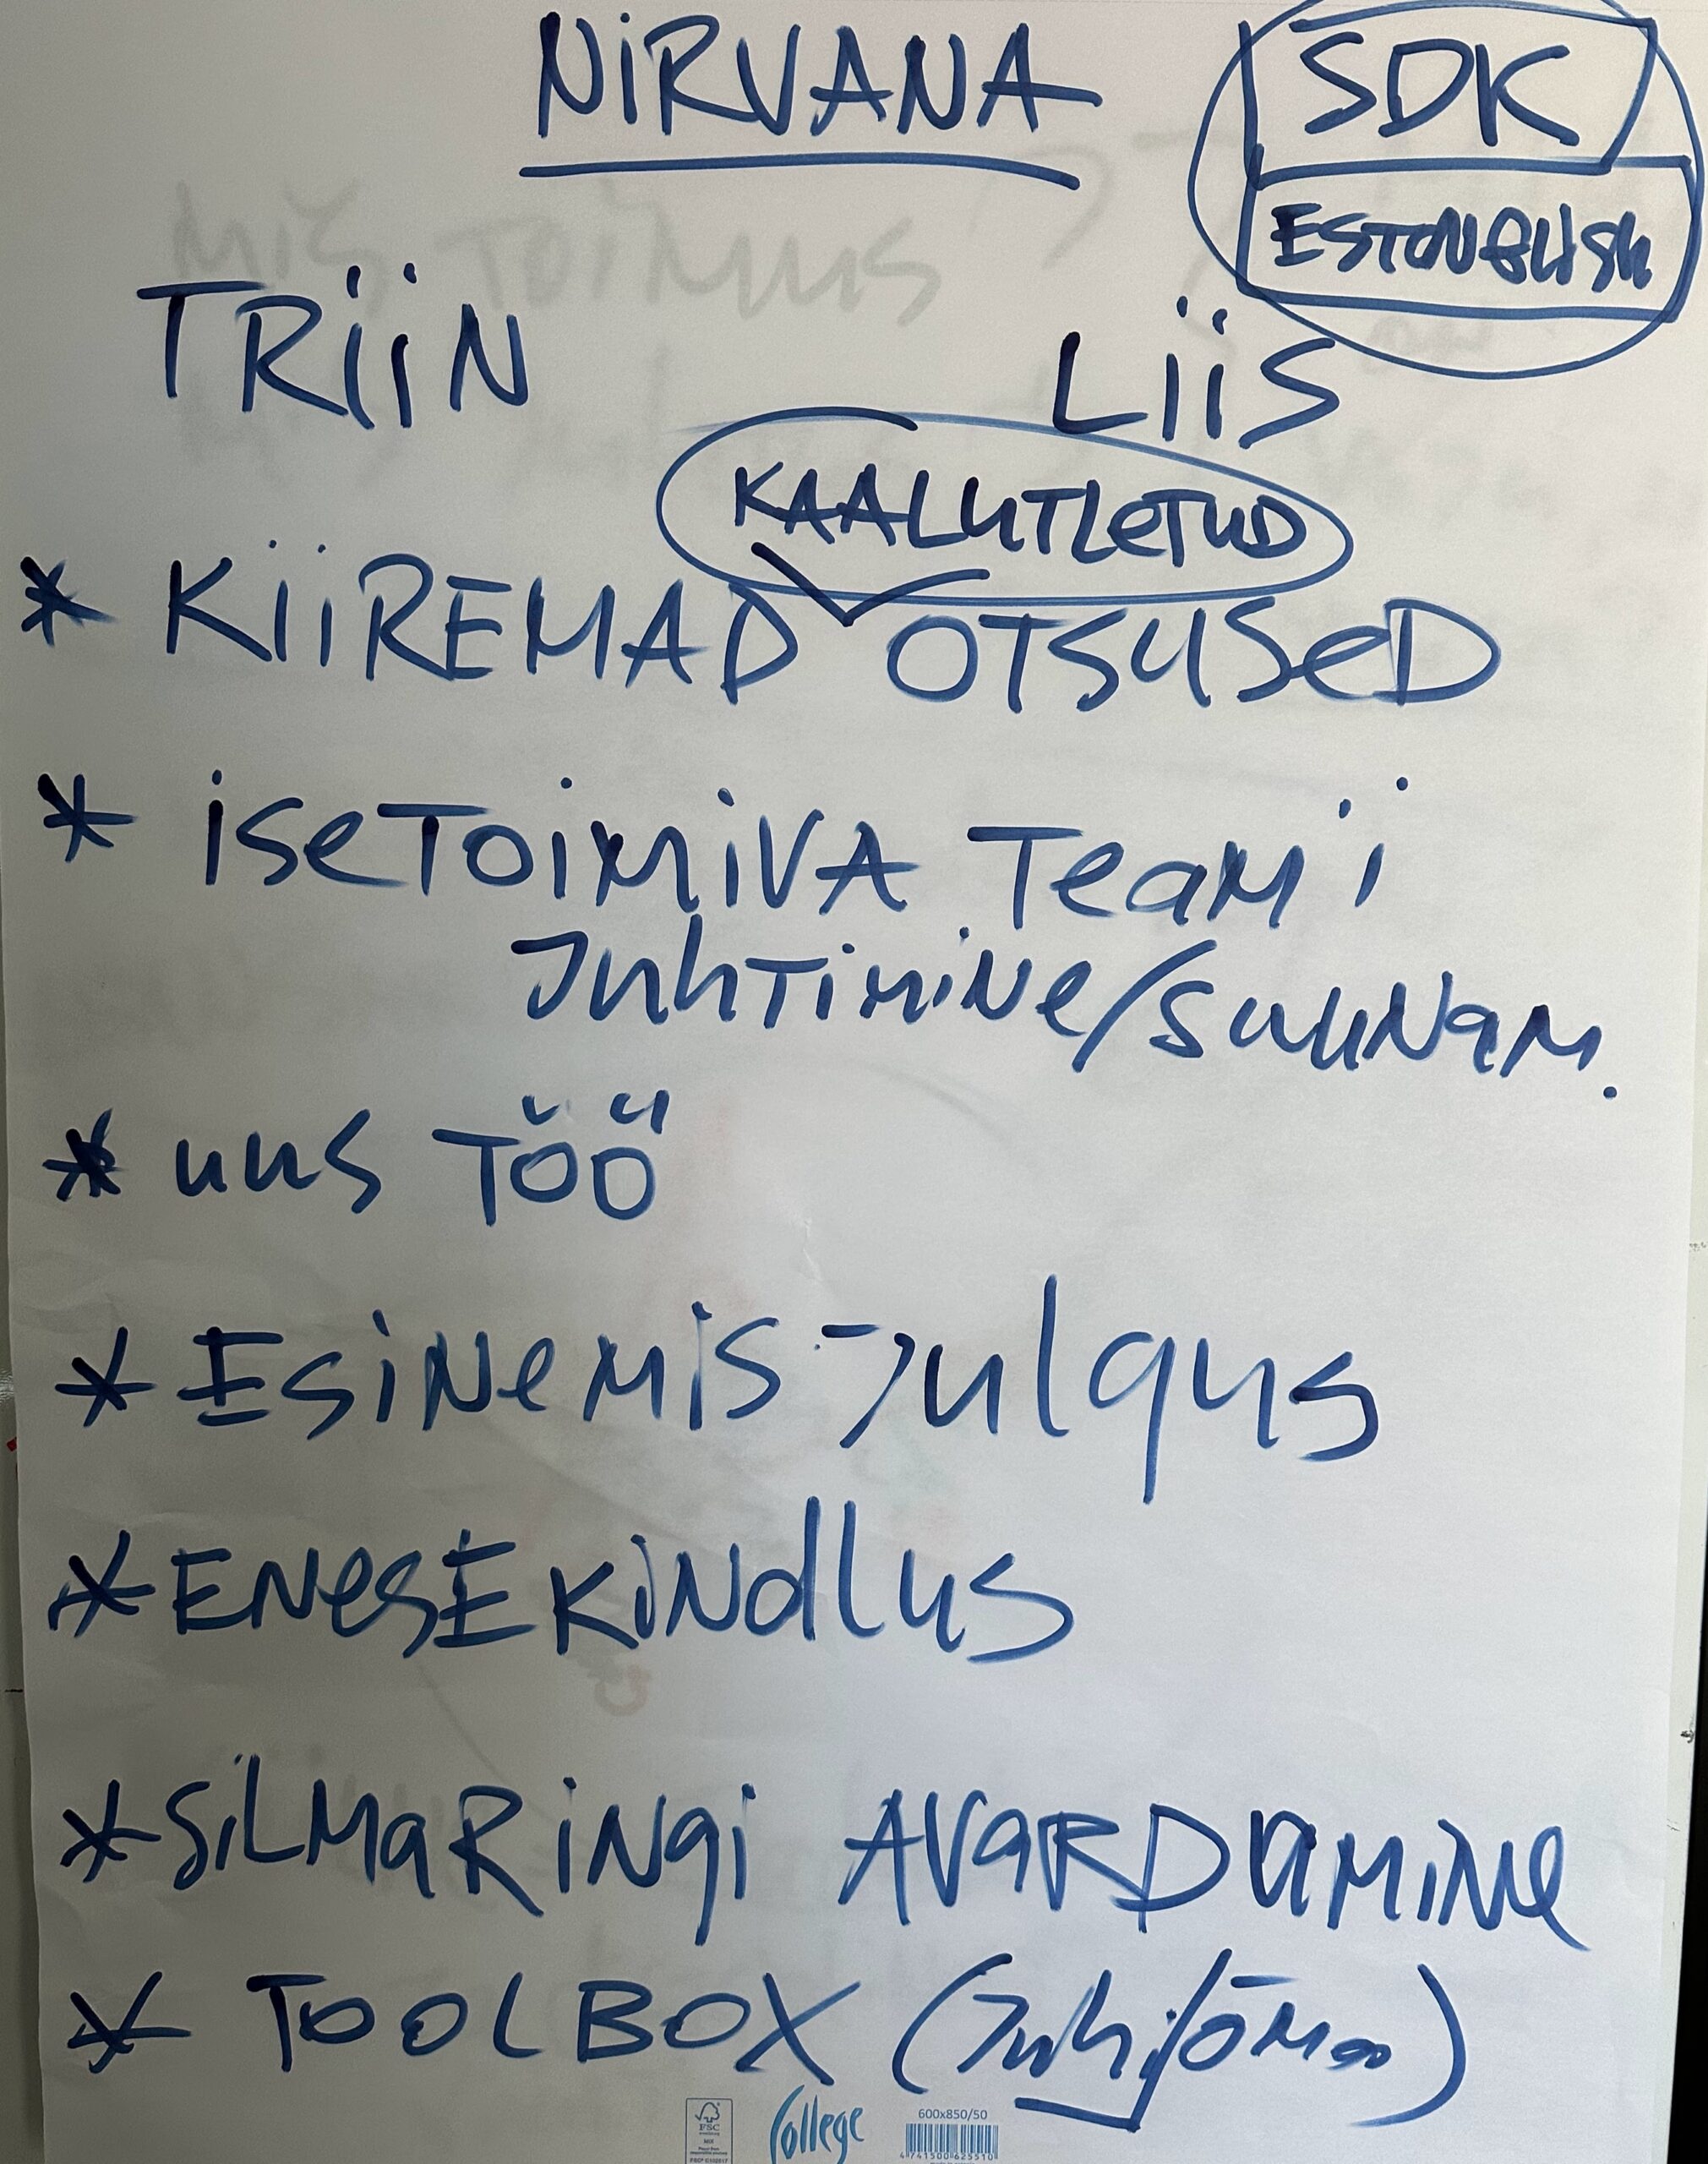 NiRVANA
SDK
ESTONBLISH
MiS TOiMUS?
TRiiN LiiS
KAALUTLeTUD
* KiiREMAD OTSUSeD
* iSeTOiMiVA TeaM'i
JuhTimiNe/SuuNam.
* uus Töö
* EsiNeMis-julgus
* ENesEKiNdlus
* SiLMaRiNgi AVaRDuMiNe
* TOOLBOX (Juhi/õm∞)
FSC
College
600x850/50
4741500625510